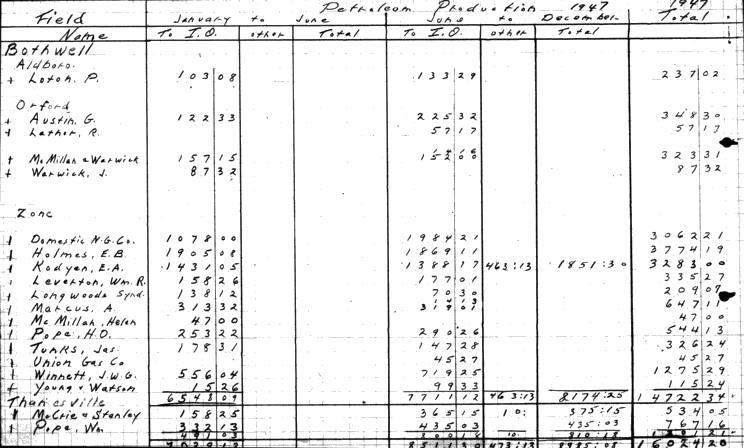 Petroleum Production 1947 1947
Field January to June June to December Total
Name To I.O. other Total To I.O. other Total
Bothwell
Aldboro.
+ Loton, P. 103 08 133 29 237 02
Orford
+ Austin, G. 122 33 225 32 348 30
+ Lather, R. 57 17 57 17
+ McMillan & Warwick 157 15 323 31
+ Warwick, J. 87 32 87 32
Zone
+ Domestic N.G.Co. 1078 00 1984 21 3062 21
+ Holmes, E.B. 1905 08 1869 11 3774 19
+ Kodyen, E.A. 1431 05 1388 17 463:13 1851:30 3283 00
Leverton, Wm. R. 158 26 177 01 335 27
+ Longwoods Synd. 138 12 70 30 209 07
+ Marcus, A. 313 32 647 11
+ McMillan, Helen 47 00 47 00
+ Pope, H.O. 253 22 290 26 544 13
+ Tunks, Jas. 178 31 147 28 326 24
+ Union Gas Co 45 27 45 27
+ Winnett, J.W.G. 556 04 719 25 1275 29
+ Young & Watson 15 26 99 33 115 24
Thamesville 6548 09 7711 12 463:13 8174:25 14722 34
+ McCrie & Stanley 158 25 365 15 10: 375:15 534 05
+ Pope, Wm 332 13 435 03 435:03 767 16